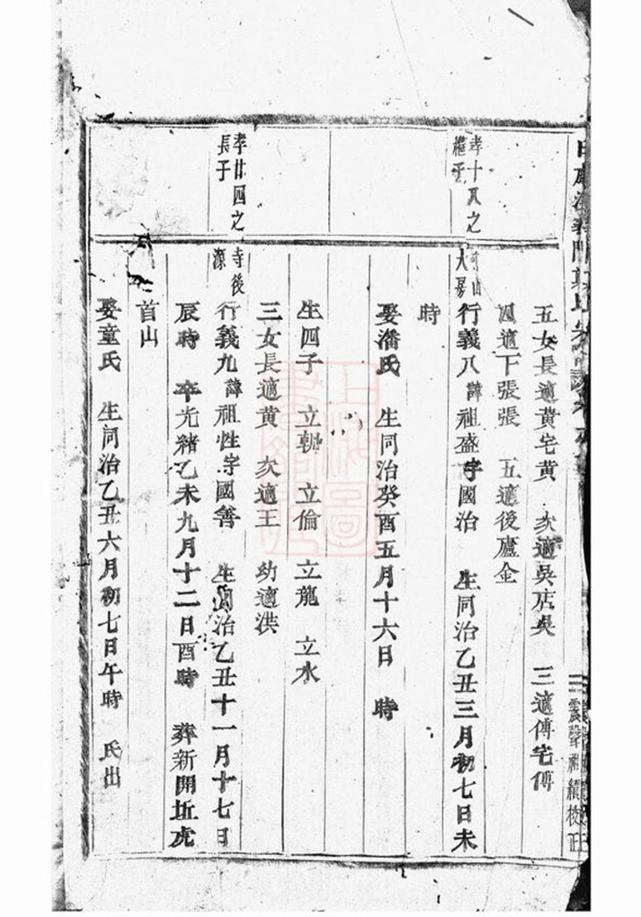 五女長適黃宅黃 次適吳店吳 三適傅宅傅
四適下張張 五適後廬金
孝十八之
繼子
行義八諱祖盛字國治 生同治乙丑三月初七日未
時
娶潘氏 生同治癸酉五月十六日 時
生四子 立朝 立倫 立龍 立水
三女長適黃 次適王 幼適洪
孝廿四之
長子
寺後
行義九諱祖性字國善 生同治乙丑十一月十七日
辰時 卒光緒乙未九月十二日酉時 葬新開坵虎
首山
娶童氏 生同治乙丑六月初七日午時 氏出